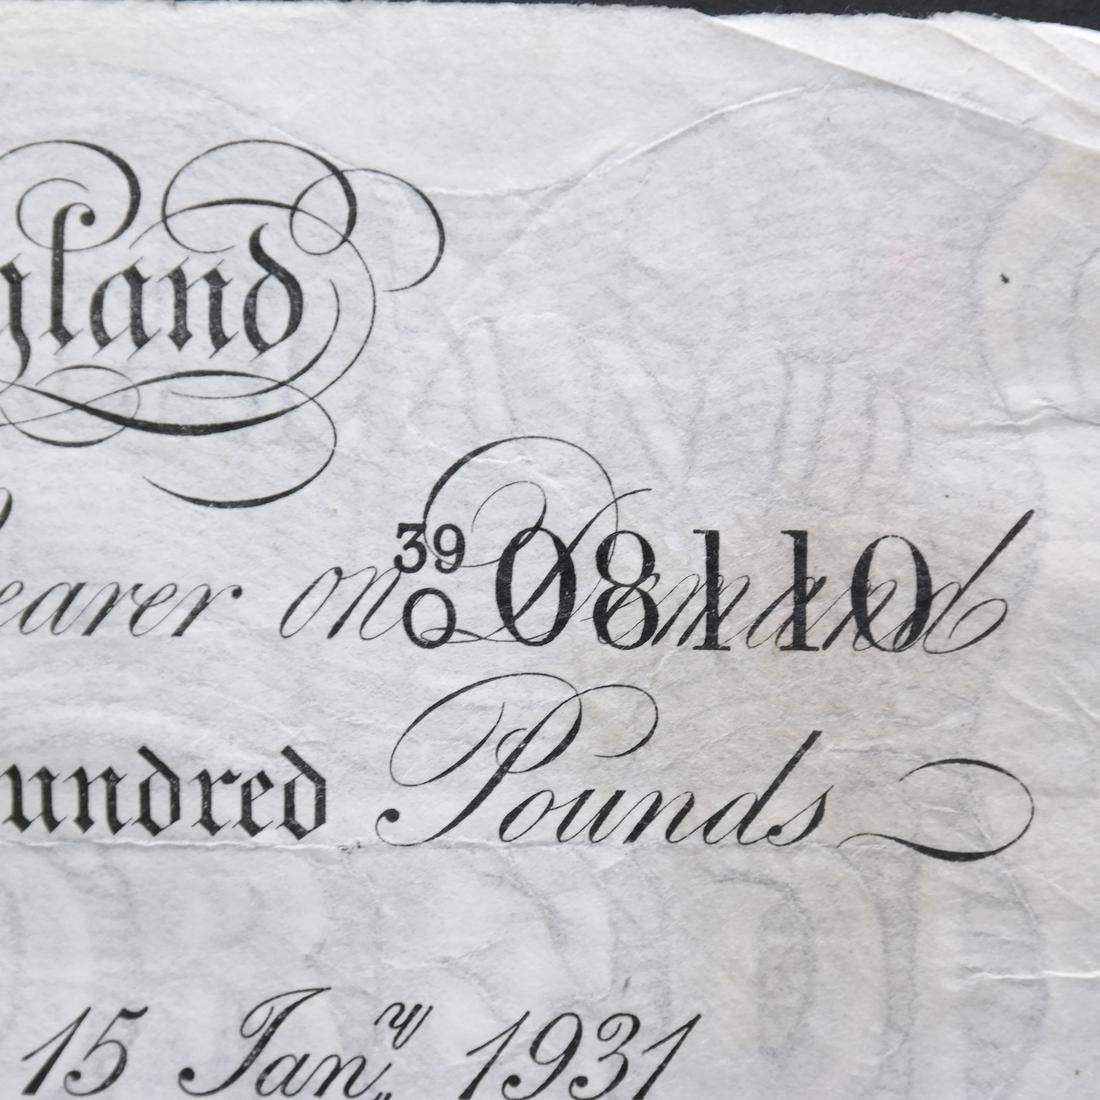 gland
earer on Demand
39
O 08110
undred Pounds
15 Jan.ry 1931